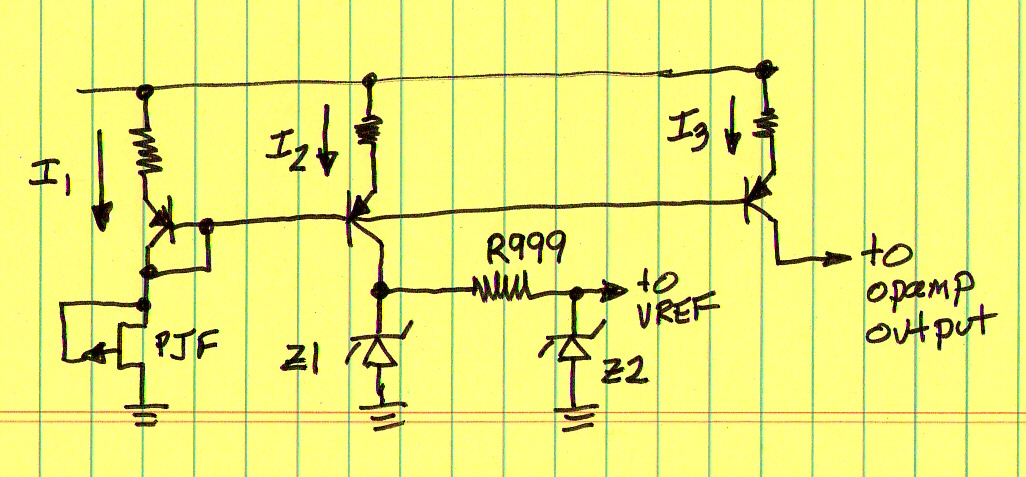 I1
I2
I3
R999
to
VREF
to
opamp
output
PJF
Z1
Z2